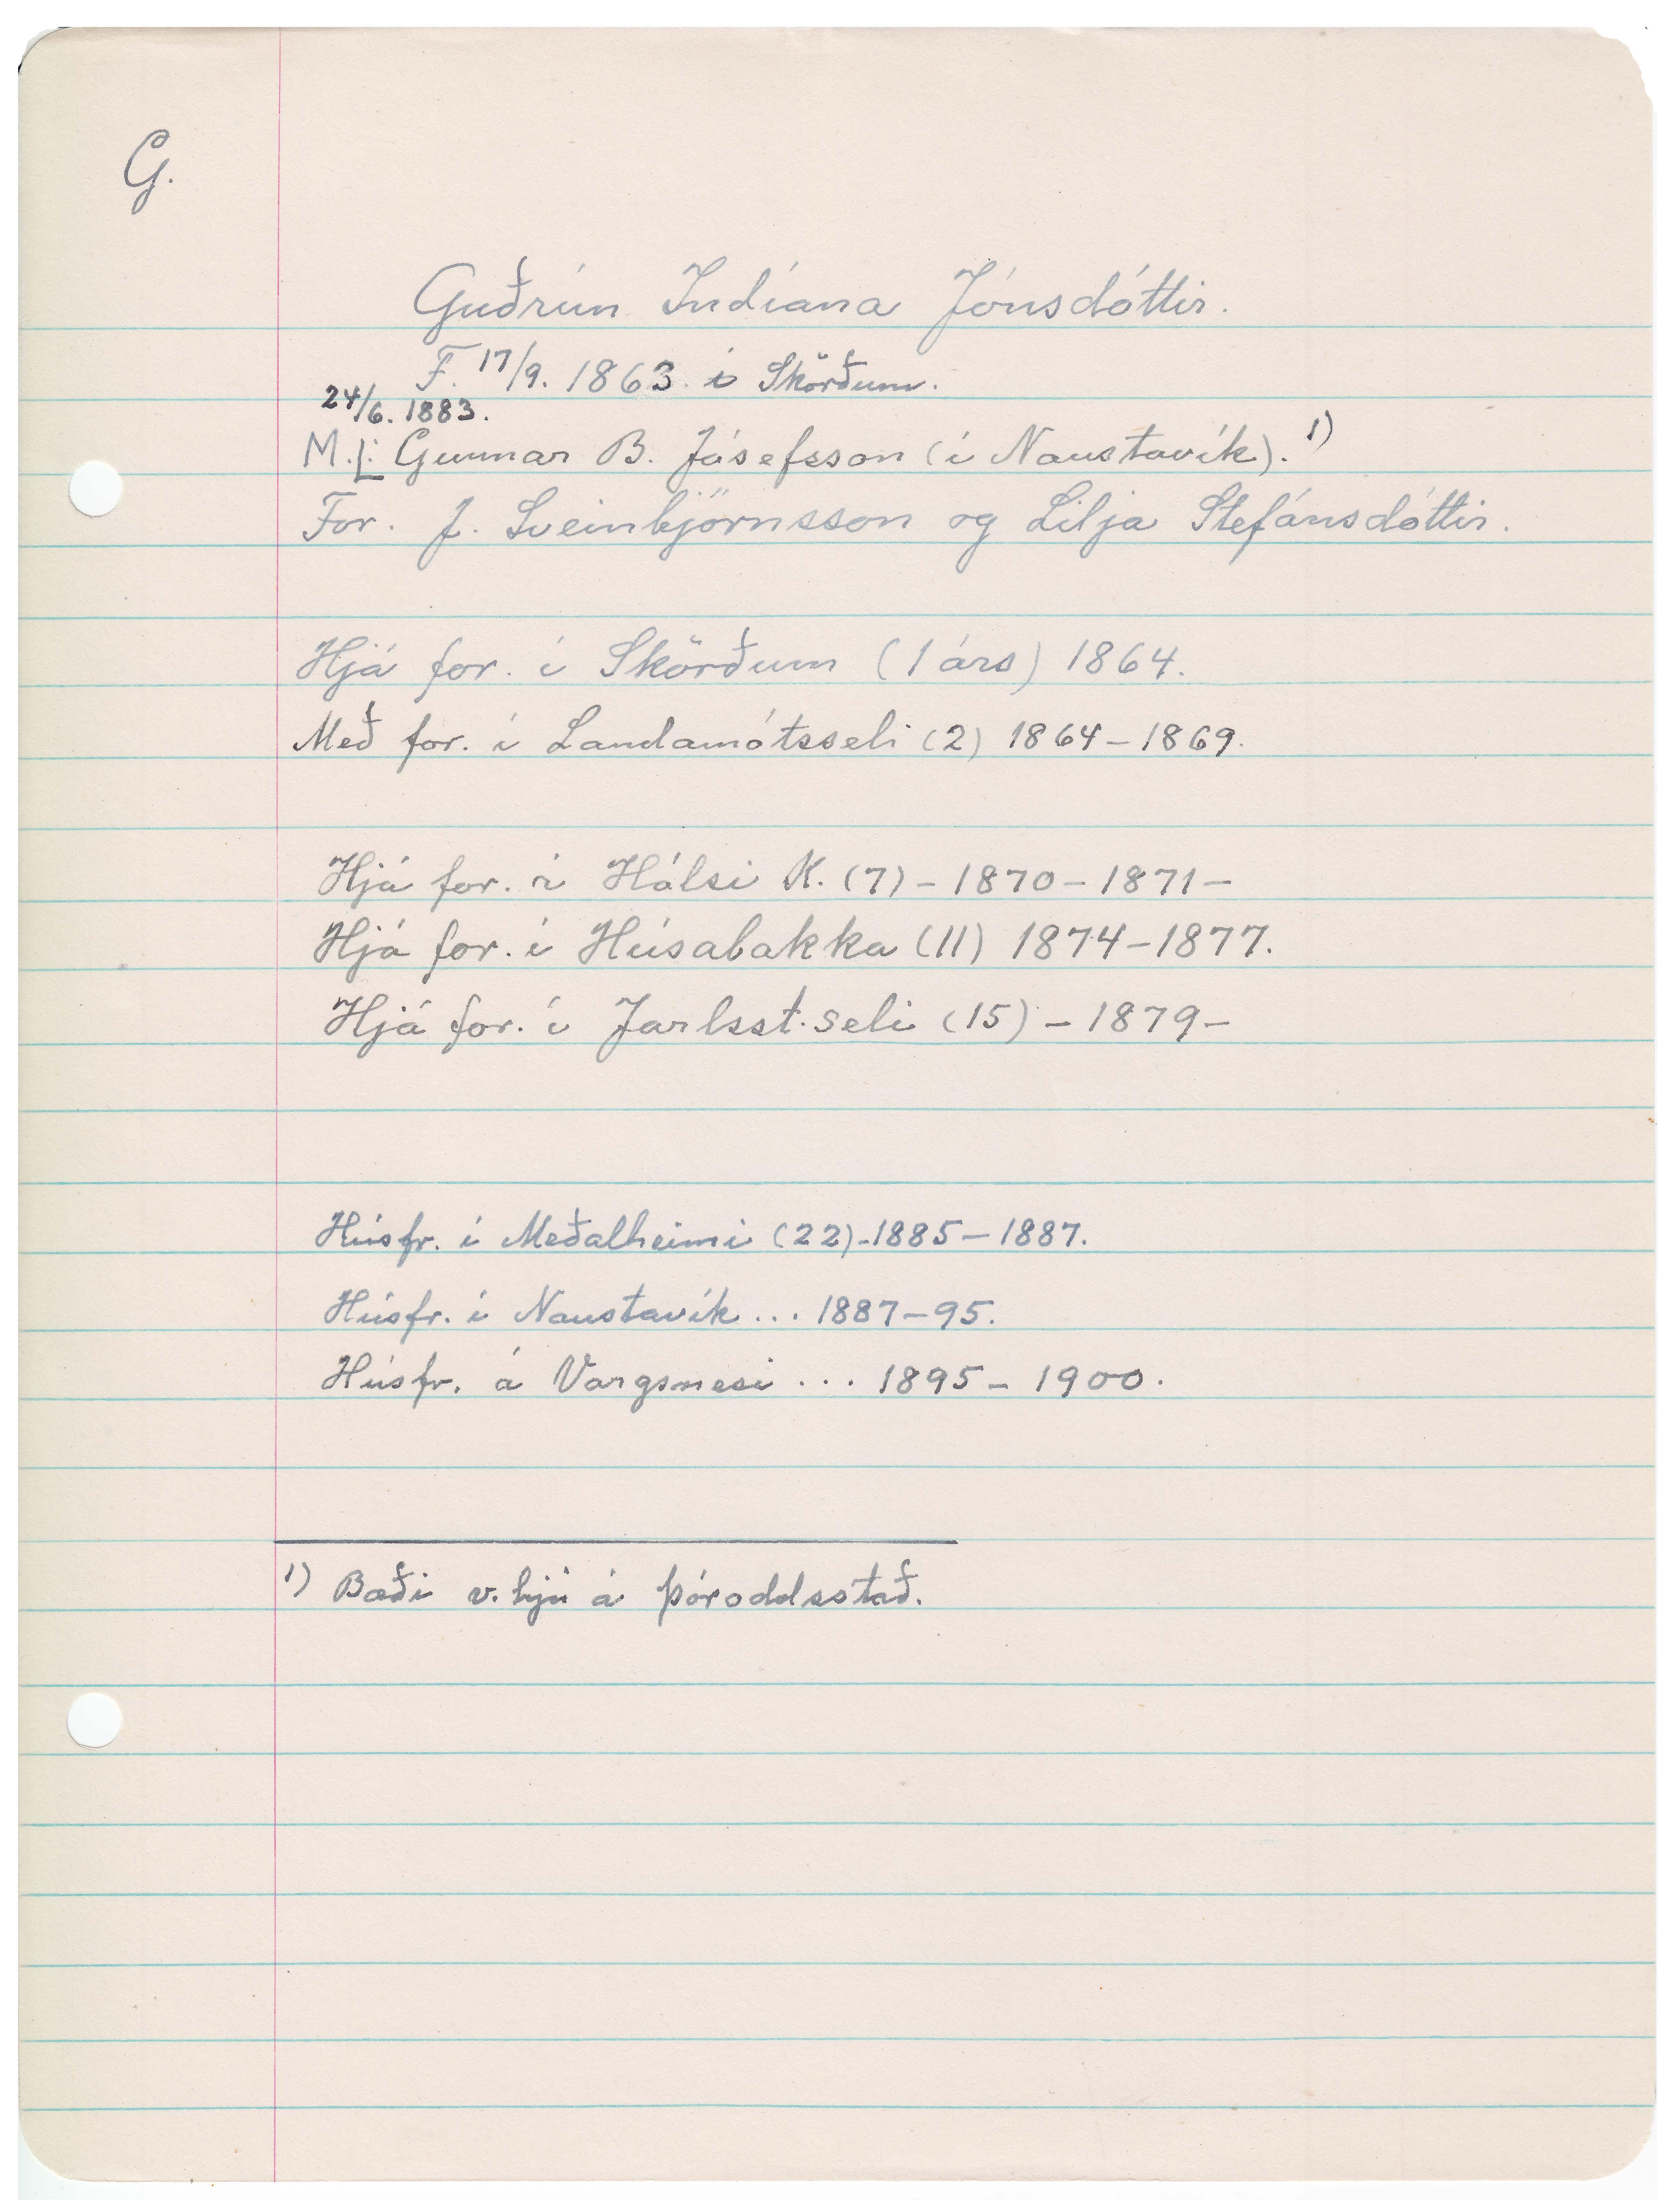 G.
Guðrún Indíana Jónsdóttir.
F. 17/9. 1863 í Skörðum.
24/6. 1883.
M. Gunnar B. Jósefsson (í Naustavík). 1)
For. J. Sveinbjörnsson og Lilja Stefánsdóttir.
Hjá for. í Skörðum (1 árs) 1864.
Með for. í Landamótsseli (2) 1864-1869.
Hjá for. í Hálsi K. (7) - 1870 - 1871 -
Hjá for. í Húsabakka (11) 1874-1877.
Hjá for. í Jarlsst.seli (15) - 1879 -
Húsfr. í Meðalheimi (22)-1885-1887.
Húsfr. í Naustavík ... 1887-95.
Húsfr. á Vargsnesi ... 1895 - 1900.
1) Bæði v.hjú á Þóroddsstað.